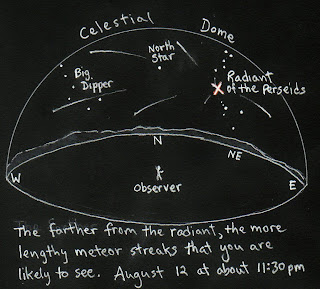 Celestial Dome
North
Star
Big
Dipper
Radiant
of the Perseids
N
NE
W
E
Observer
The farther from the radiant, the more
lengthy meteor streaks that you are
likely to see. August 12 at about 11:30pm